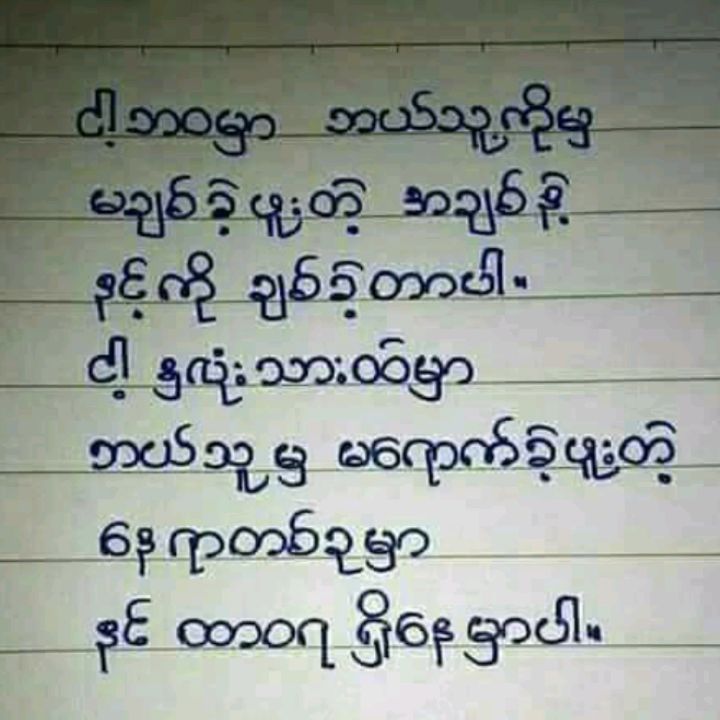 ငါ့ဘဝမှာ ဘယ်သူ့ကိုမှ
မချစ်ခဲ့ဖူးတဲ့ အချစ်နဲ့
နင့်ကို ချစ်ခဲ့တာပါ။
ငါ့ နှလုံးသားထဲမှာ
ဘယ်သူမှ မရောက်ခဲ့ဖူးတဲ့
နေရာတစ်ခုမှာ
နင် ထာဝရ ရှိနေမှာပါ။